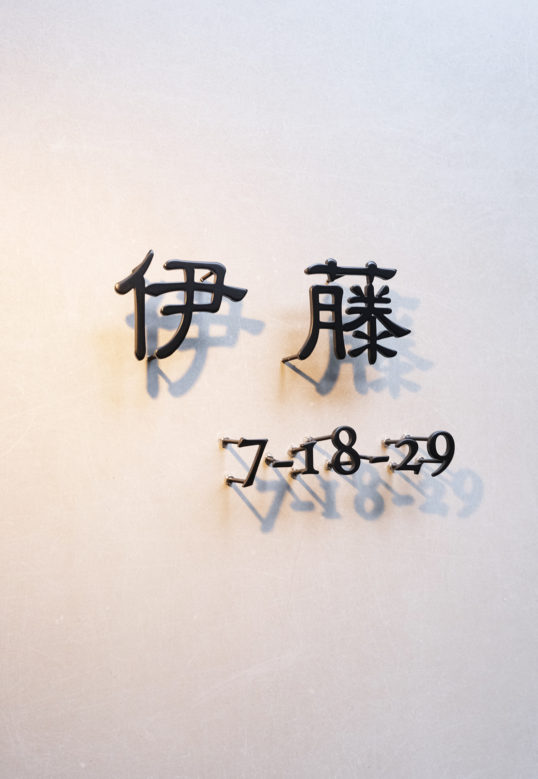 伊藤
7-18-29